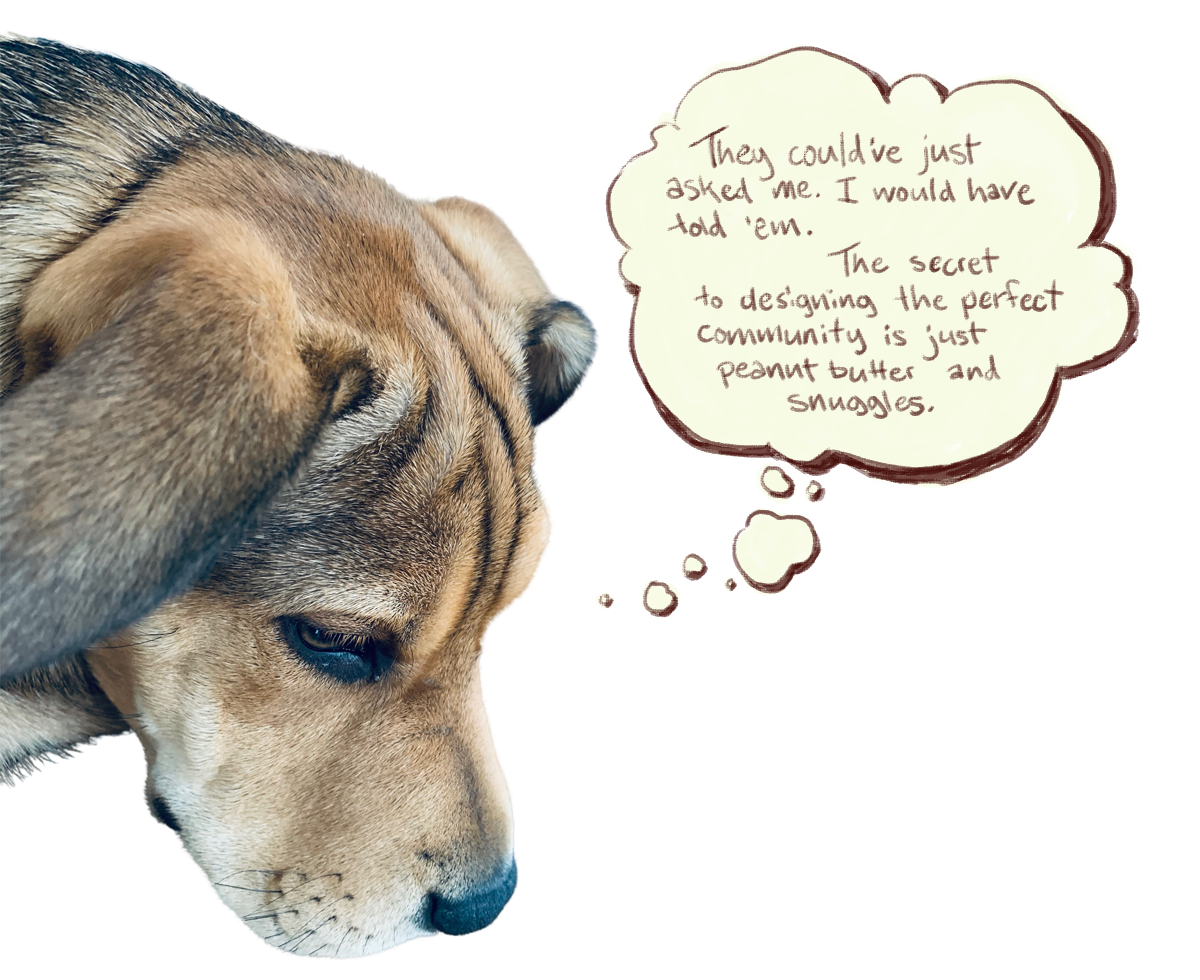 They could've just
asked me. I would have
told 'em.
The secret
to designing the perfect
community is just
peanut butter and
snuggles.